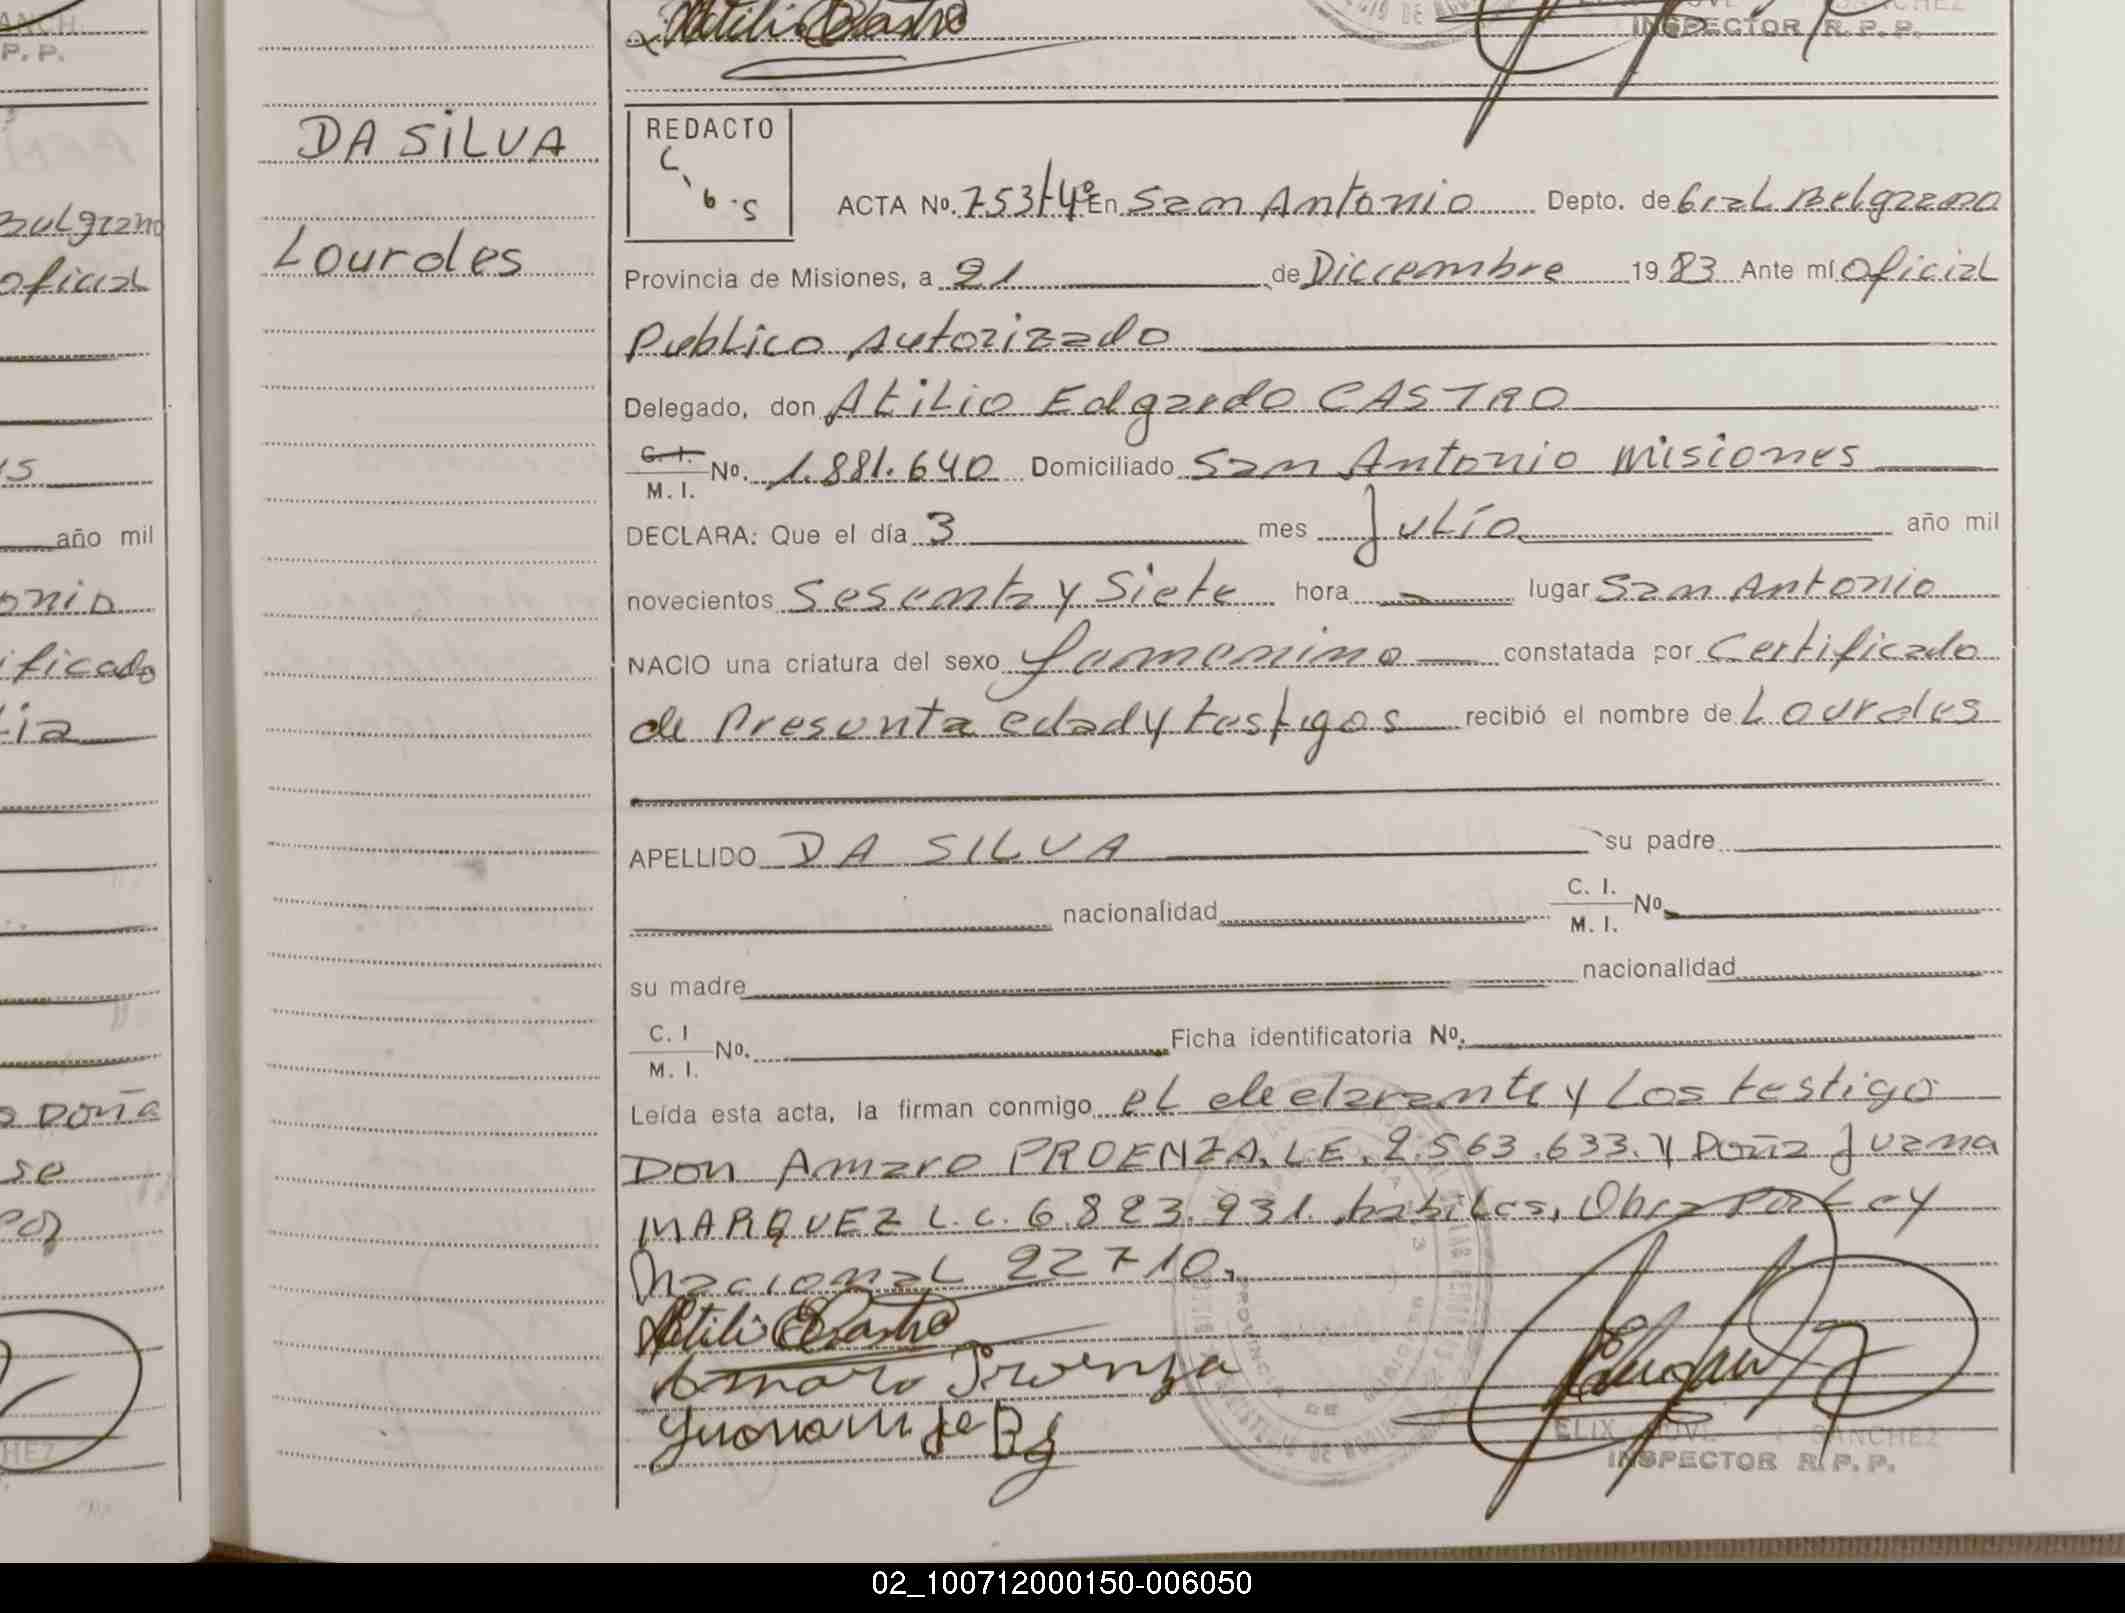 DA SILVA
Lourdes
INSPECTOR R. P. P.
REDACTO
ACTA No. 753/T4º En San Antonio Depto. de Gral Belgrano
Provincia de Misiones, a 21 de Diciembre 1983 Ante mí Oficial
Publico Autorizado
Delegado, don Atilio Edgardo CASTRO
C. I.
M. I. No. 1.881.640 Domiciliado San Antonio Misiones
DECLARA: Que el día 3 mes Julio año mil
novecientos Sesenta y Siete hora lugar San Antonio
NACIO una criatura del sexo femenino constatada por Certificado
de Presunta edad y testigos recibió el nombre de Lourdes
APELLIDO DA SILVA su padre
nacionalidad C. I. M. I. No
su madre nacionalidad
C. I M. I. No. Ficha identificatoria No.
Leída esta acta, la firman conmigo el declarante y Los testigo
Don Amaro PROENZA, L.E. 2.563.633. y Doña Juana
MARQUEZ L.C. 6.823.931. habiles, Obra Por Ley
Nacional 22710.
Atilio E Castro
Amaro Proenza
SANCHEZ
INSPECTOR R. P. P.
02_100712000150-006050